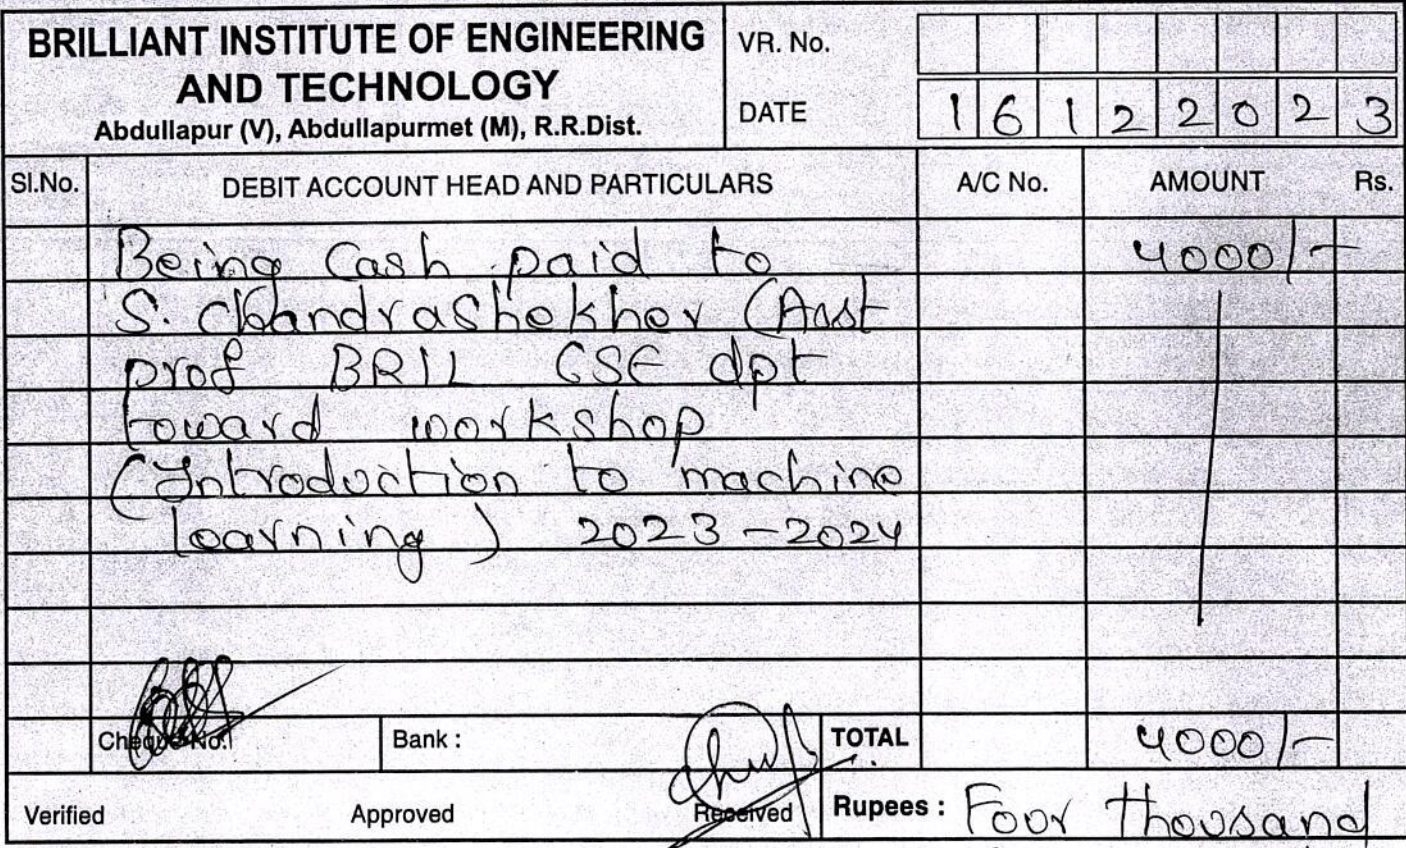 BRILLIANT INSTITUTE OF ENGINEERING
AND TECHNOLOGY
Abdullapur (V), Abdullapurmet (M), R.R.Dist.
VR. No.
DATE 16122023
Sl.No. DEBIT ACCOUNT HEAD AND PARTICULARS A/C No. AMOUNT Rs.
Being Cash paid to 4000/-
S. Chandrashekher (Asst
prof BRIL CSE dpt
toward workshop
(Introduction to machine
learning) 2023-2024
Cheque No.: Bank : TOTAL 4000/-
Verified Approved Received Rupees : Four thousand